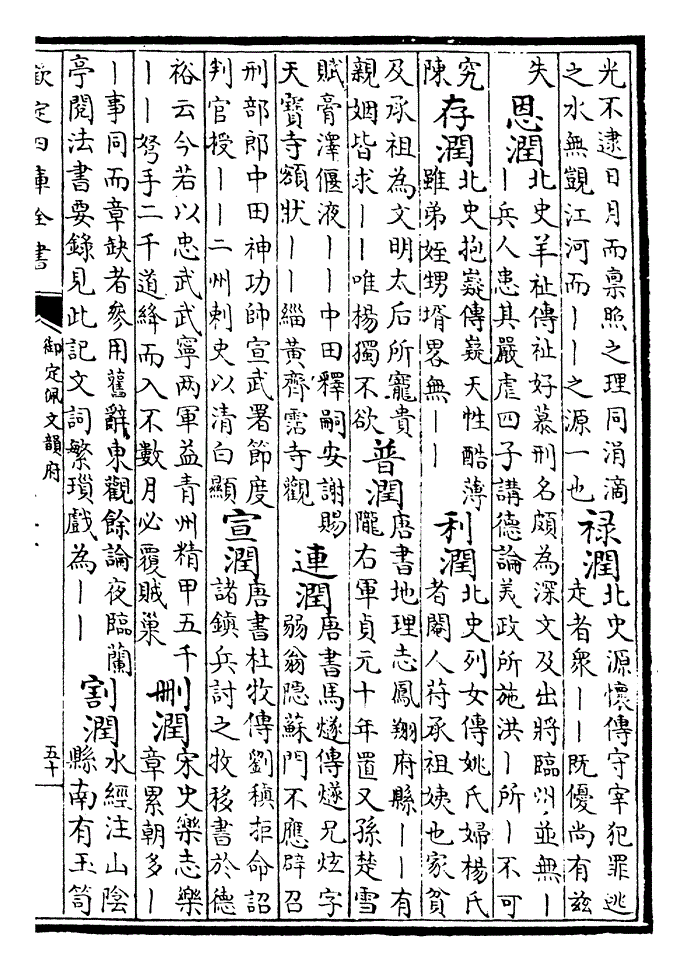 光不逮日月而禀照之理同涓滴
之水無觀江河而丨丨之源一也
祿潤
北史源懷傳守宰犯罪逃
走者衆丨丨既優尚有兹
失
恩潤
北史羊祉傳祉好慕刑名頗為深文及出將臨州並無丨
丨兵人患其嚴虐四子講德論美政所施洪丨所丨不可
究
陳
存潤
北史抱嶷傳嶷天性酷薄
雖弟姪甥壻畧無丨丨
利潤
北史列女傳姚氏婦楊氏
者閹人苻承祖姨也家貧
及承祖為文明太后所寵貴
親姻皆求丨丨唯楊獨不欲
普潤
唐書地理志鳳翔府縣丨丨有
隴右軍貞元十年置又孫楚雪
賦膏澤偃液丨丨中田釋嗣安謝賜
天寶寺額狀丨丨緇黃齊霑寺觀
連潤
唐書馬燧傳燧兄炫字
弱翁隱蘇門不應辟召
刑部郎中田神功帥宣武署節度
判官授丨丨二州刺史以清白顯
宣潤
唐書杜牧傳劉稹拒命詔
諸鎮兵討之牧移書於德
裕云今若以忠武武寧两軍益青州精甲五千
丨丨弩手二千道絳而入不數月必覆賊巢
刪潤
宋史樂志樂
章累朝多丨
丨事同而章缺者參用舊辭東觀餘論夜臨蘭
亭閱法書要錄見此記文詞繁瑣戲為丨丨
割潤
水經注山陰
縣南有玉笥
欽定四庫全書
御定佩文韻府
五十